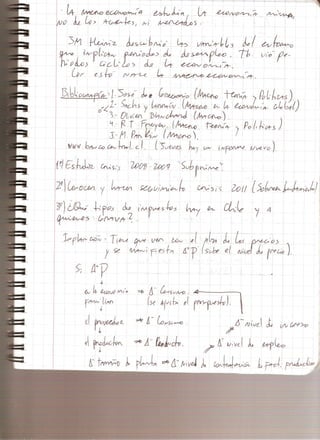 · La macroeconomía estudia, la economía misma,
no de los Agentes, ni mercados.
· SM Heiniz descubrió las variables del entorno
que implican periodos de desempleo. Tb. vio pe-
riodos Cíclicos de la economía.
Con esto nace la macroeconomía.
Bibliografía: 1. José de Gregorio (Macro teoría y Políticas)
2- Sachs y Larraín (Macro en la economía global)
3- Olivier Blanchard (Macro)
4- R T Froyen. (Macro Teoría y Políticas)
5- M Parkin (Macro)
Ver banco central.cl (Jueves hay un informe nuevo)
1º) Estudiar crisis 2008-2009 Subprime?
2º) Conocen y hacen seguimiento crisis 2011 (Soberano
3º) ¿Qué tipos de impuestos hay en Chile y a
quienes Grava?
Inflación: Tiene que ver con el alza de los precios
y se manifiesta ΔºP (sube el nivel de precio).
Si ΔºP
en la economía → Δº Consumo.
familiar (se ajusta el presupuesto)
el proveedor → Δº Consumo Δº nivel de
el productor → Δº Producto. Δº nivel de empleo
Δº tamaño de planta → Δº Nivel de contratación de fact. productivo